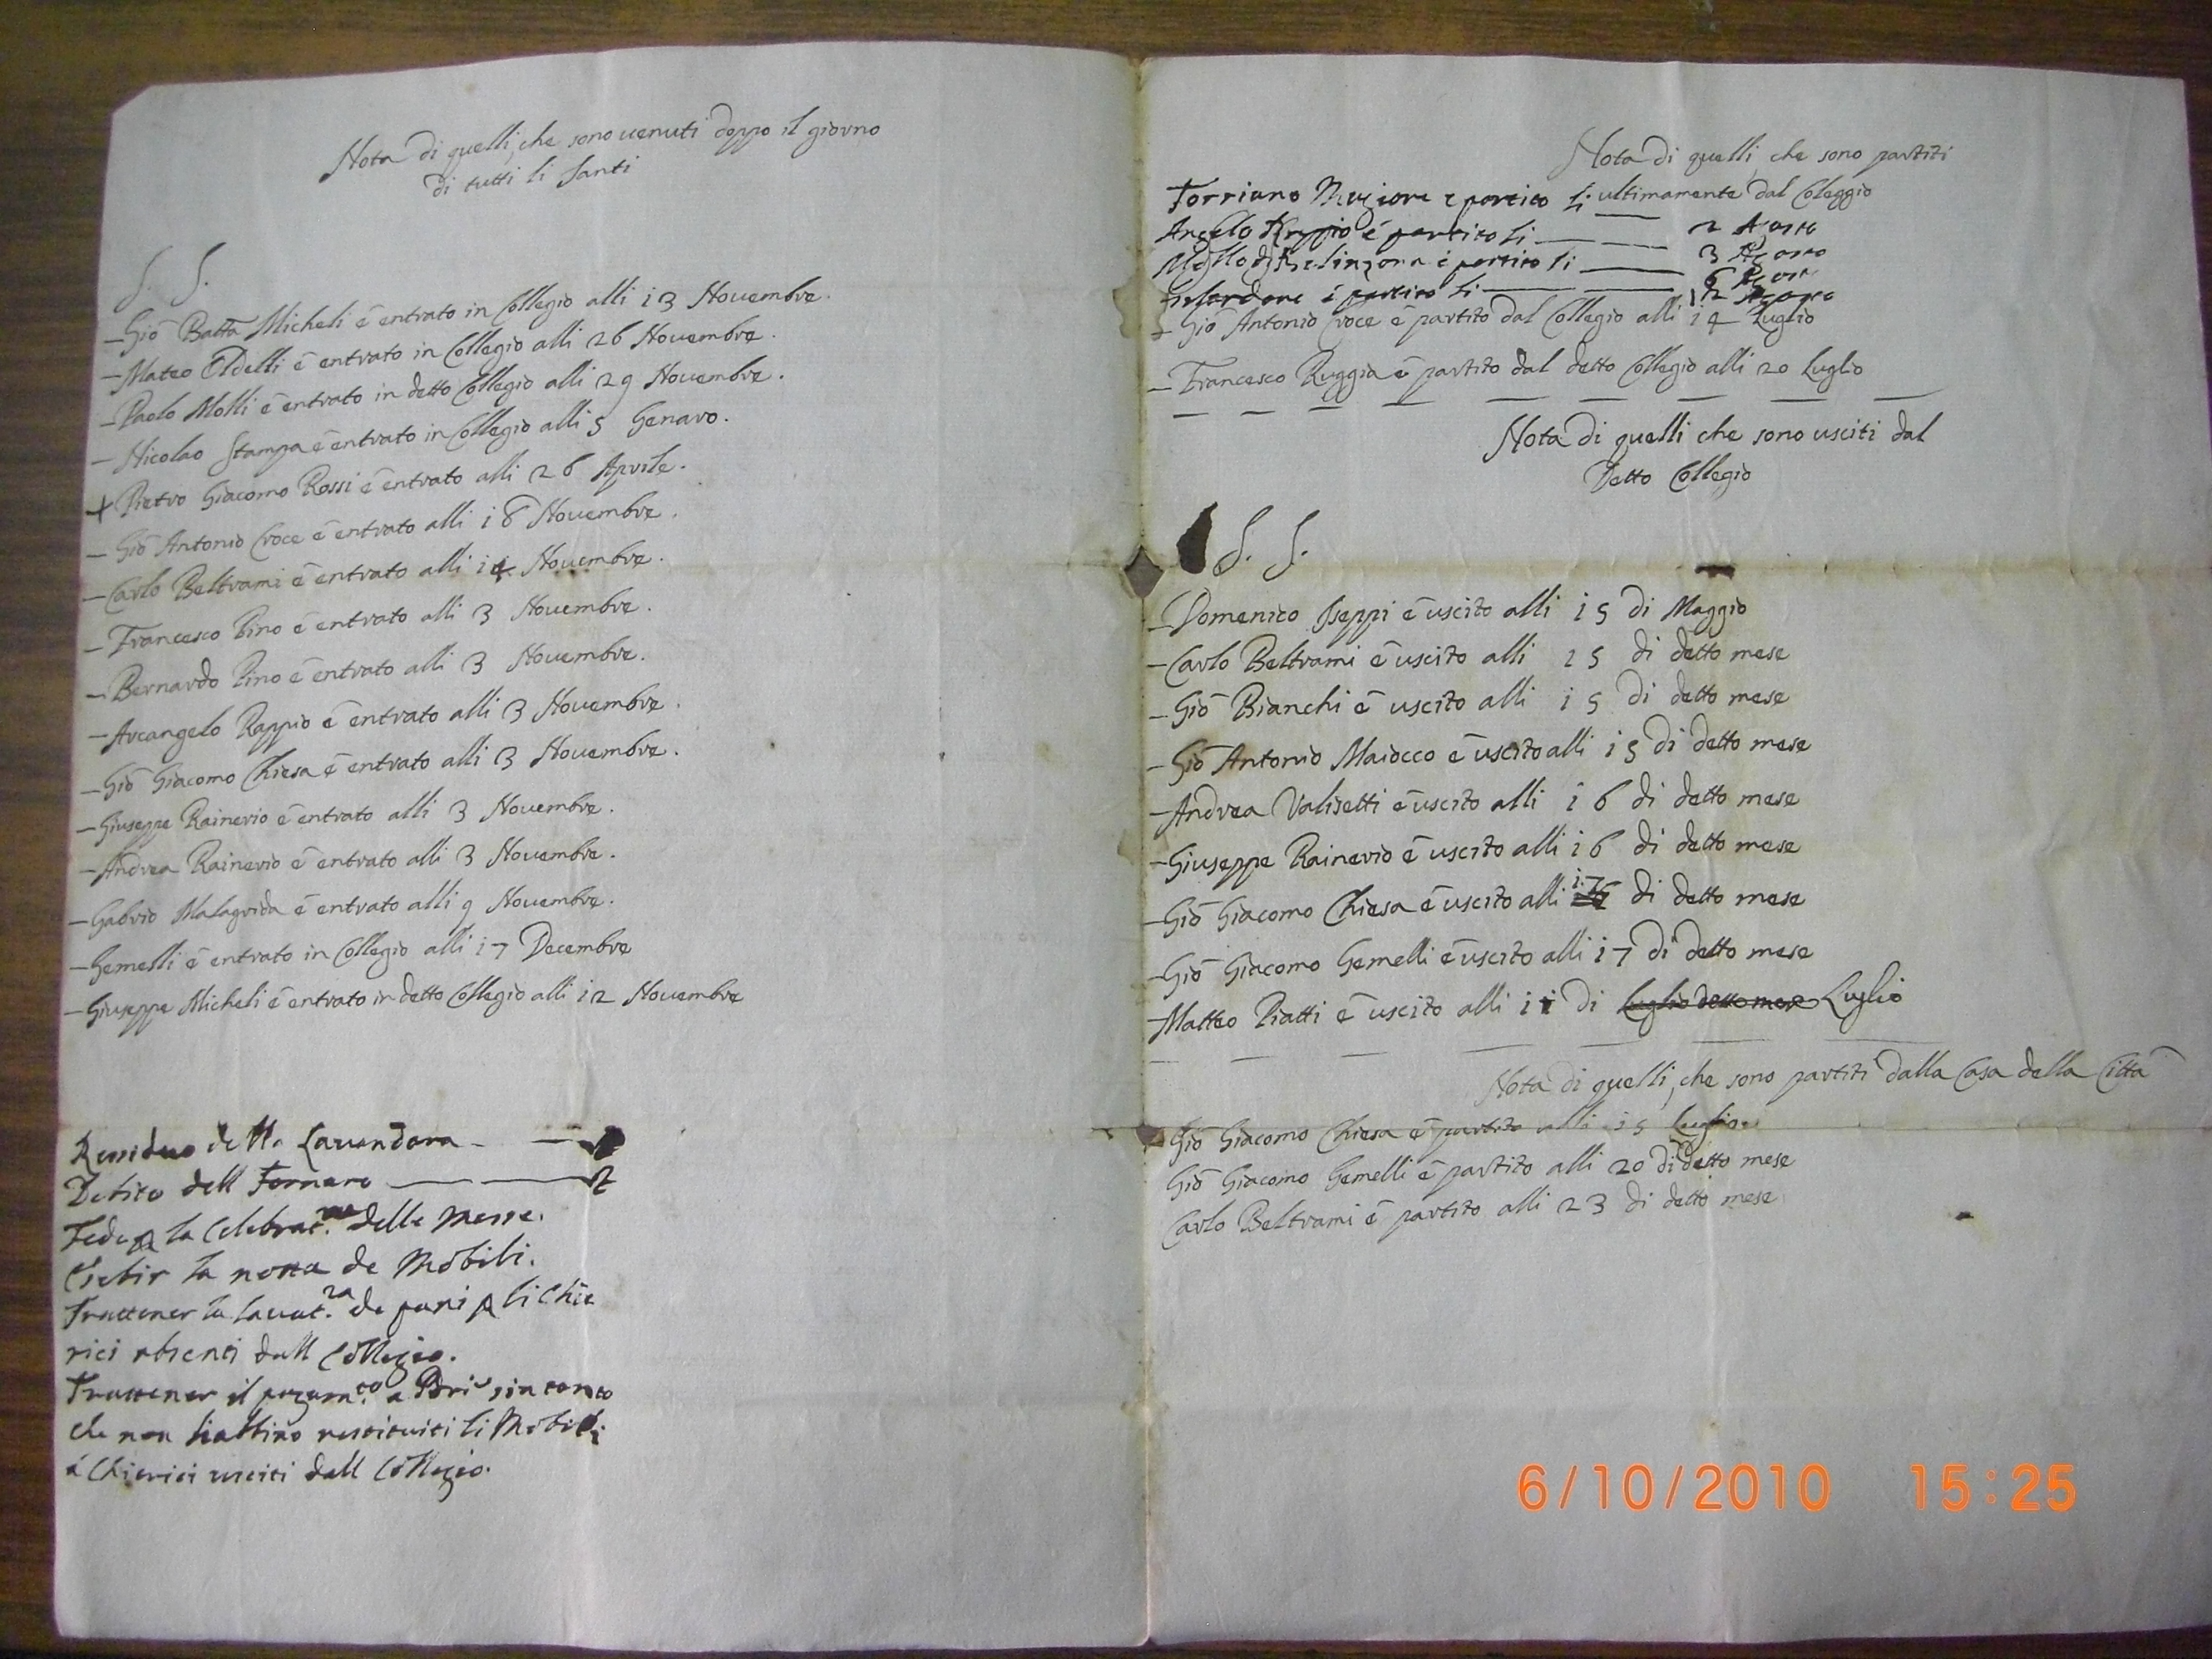 Nota di quelli, che sono venuti doppo il giorno
di tutti li Santi
S. S.
– Giõ Batta Micheli è entrato in Collegio alli 13 Nouembre.
– Mateo Oldelli è entrato in Collegio alli 26 Nouembre.
– Paolo Molli è entrato in detto Collegio alli 29 Nouembre.
– Nicolao Stampa è entrato in Collegio alli 5 Genaro.
+ Pietro Giacomo Rossi è entrato alli 26 Aprile.
– Giõ Antonio Croce è entrato alli 18 Nouembre.
– Carlo Beltrami è entrato alli 14 Nouembre.
– Francesco Pino è entrato alli 3 Nouembre.
– Bernardo Pino è entrato alli 3 Nouembre.
– Arcangelo Rappio è entrato alli 3 Nouembre.
– Giõ Giacomo Chiesa è entrato alli 3 Nouembre.
– Giuseppe Rainerio è entrato alli 3 Nouembre.
– Andrea Rainerio è entrato alli 3 Nouembre.
– Gabrio Malagrida è entrato alli 9 Nouembre.
– Gemelli è entrato in Collegio alli 17 Decembre
– Giuseppe Micheli è entrato in detto Collegio alli 12 Nouembre
Residuo della Lauandara –
Debito dell Fornaro
Fede p la Celebrat.ne delle Messe.
la notta de Mobili.
Trattener la lauat.ra de pani p li Chie
rici absenti dall Collegio.
Trattener il pagam.to a sin tanto
che non habbino restituiti li Mobili
a Chierici usciti dall Collegio.
Nota di quelli, che sono partiti
ultimamente dal Coleggio
Torriano Magiore è partito li 2 Agosto
Angelo è partito li 3 Agosto
di Belinzona è partito li 6 Agosto
è partito li 12 Agosto
– Giõ Antonio Croce è partito dal Collegio alli 14 Luglio
– Francesco Ruggia è partito dal detto Collegio alli 20 Luglio
Nota di quelli che sono usciti dal
Detto Collegio
S. S.
– Domenico Iseppi è uscito alli 15 di Maggio
– Carlo Beltrami è uscito alli 15 di detto mese
– Giõ Bianchi è uscito alli 15 di detto mese
– Giõ Antonio Maiocco è uscito alli 15 di detto mese
– Andrea Valisetti è uscito alli 16 di detto mese
– Giuseppe Rainerio è uscito alli 16 di detto mese
– Giõ Giacomo Chiesa è uscito alli 17 di detto mese
– Giõ Giacomo Gemelli è uscito alli 17 di detto mese
– Matteo Piatti è uscito alli 11 di Luglio detto mese Luglio
Nota di quelli, che sono partiti dalla Casa della Città
Giõ Giacomo Chiesa è partito alli 15 Luglio.
Giõ Giacomo Gemelli è partito alli 20 di detto mese
Carlo Beltrami è partito alli 23 di detto mese
6/10/2010 15:25